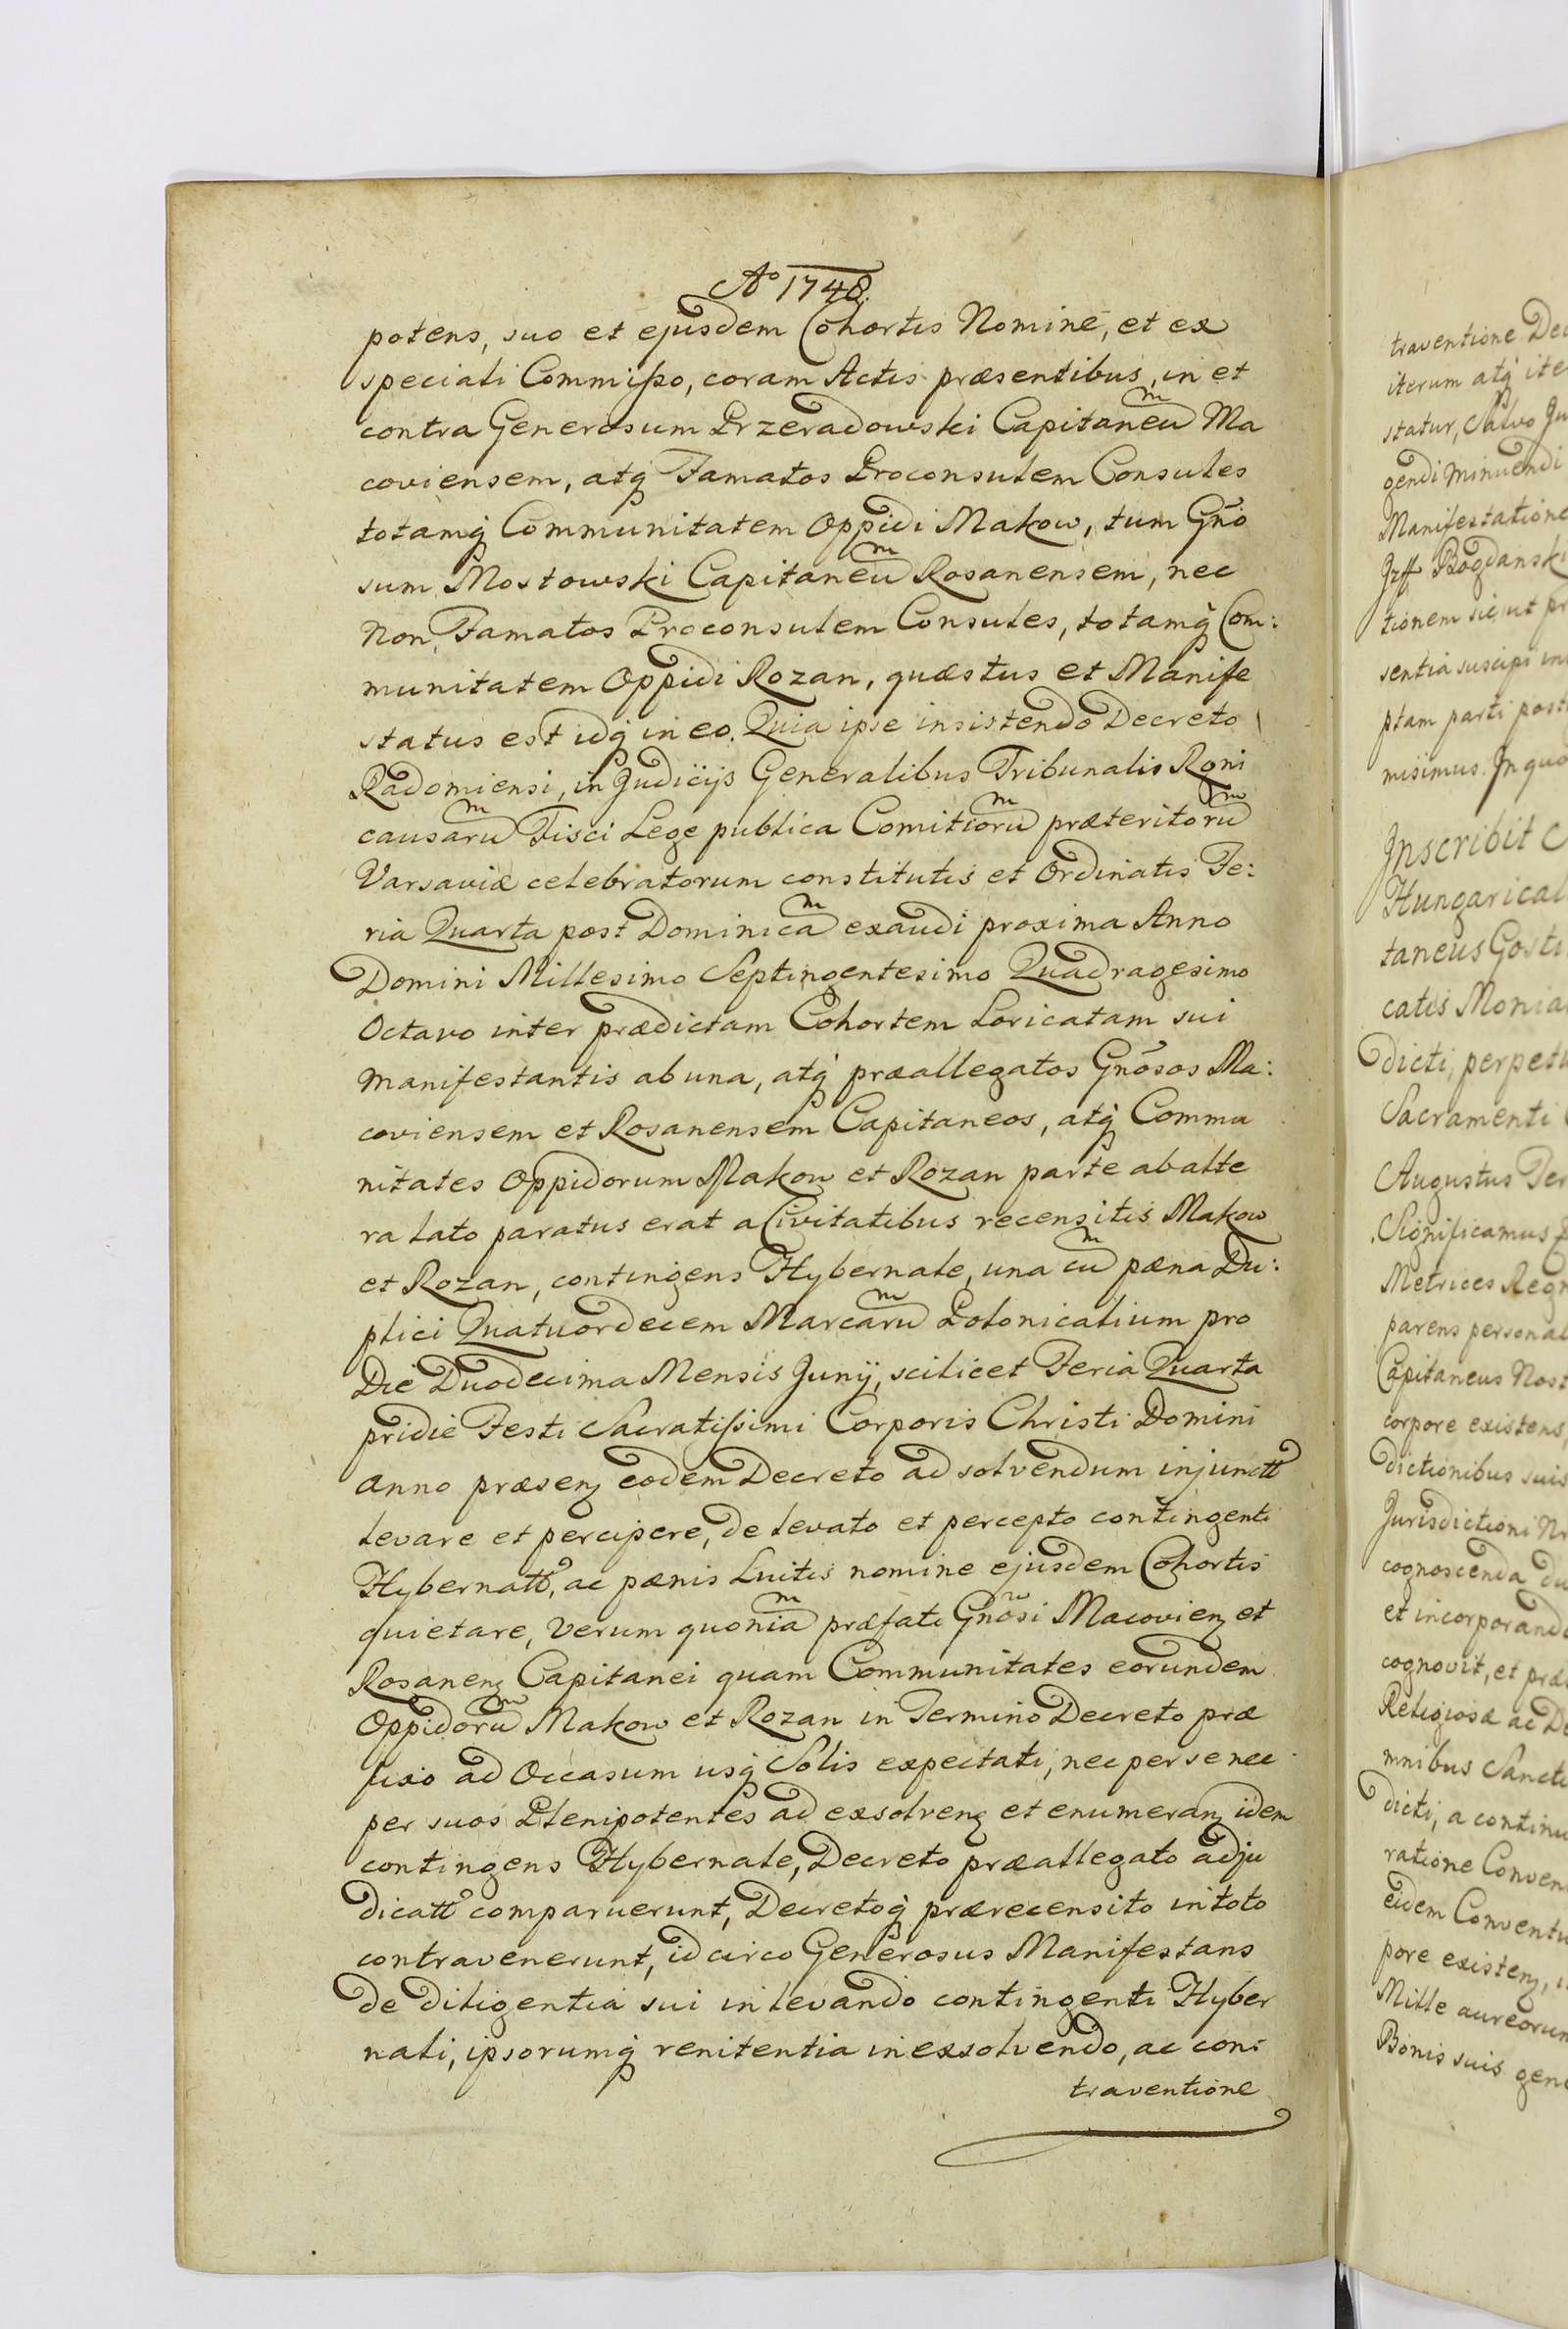 Aº 1748.
potens, suo et ejusdem Cohortis Nomine, et ex
speciali Commisso, coram Actis præsentibus, in et
contra Generosum Przeradowski Capitaneũ Ma
coviensem, atq̃ Famatos Proconsulem Consules
totamq̃ Communitatem Oppidi Makow, tum Gño
sum Mostowski Capitaneũ Rosanensem, nec
Non Famatos Proconsulem Consules, totamq̃ Com:
munitatem Oppidi Rozan, quæstus et Manife
status est idq̃ in eo. Quia ipse insistendo Decreto
Radomiensi, in Judicijs Generalibus Tribunalis Rgni
causarũ Fisci Lege publica Comitiorũ præteritorũ
Varsaviæ celebratorum constitutis et Ordinatis Fe:
ria Quarta post Dominicã exaudi proxima Anno
Domini Millesimo Septingentesimo Quadragesimo
Octavo inter prædictam Cohortem Loricatam sui
manifestantis ab una, atq̃ præallegatos Gñosos Ma:
coviensem et Rosanensem Capitaneos, atq̃ Commu
nitates Oppidorum Makow et Rozan parte ab alte
ra lato paratus erat a Civitatibus recensitis Makow
et Rozan, contingens Hybernale, una cũ pæna Du:
plici Quatuordecem Marcarũ Polonicalium pro
Die Duodecima Mensis Junij, scilicet Feria Quarta
pridie Festi Sacratissimi Corporis Christi Domini
anno præsenʒ eodem Decreto ad solvendum injunctt
levare et percipere, de levato et percepto contingenti
Hybernatt, ac pænis Luitis nomine ejusdem Cohortis
quietare, Verum quoniã præfati Gñosi Macovienʒ et
Rosanenʒ Capitanei quam Communitates eorundem
Oppidorũ Makow et Rozan in Termino Decreto præ
fixo ad Occasum usq̃ Solis expectati, nec per se nec
per suos Plenipotentes ad exsolvenʒ et enumeranʒ idem
contingens Hybernale, Decreto præallegato adju
dicatt comparuerunt, Decretoq̃ prærecensito in toto
contravenerunt, id circo Generosus Manifestans
de diligentia sui in levando contingenti Hyber
nali, ipsorumq̃ renitentia in exsolvendo, ac con:
traventione
traventione
iterum atq̃
statur, Salvo
gendi minuendi
Bogdanski
tionem sic, ut
sentia suscipi
ptam parti
misimus. In
Inscribit
taneus
catis
dicti, perpetu
Sacramenti
Augustus
Significamus
Metrices
parens
Capitaneus
corpore existens
dictionibus suis
Jurisdictioni
cognoscenda
et incorporand
cognovit, et
Religiosæ ac
mnibus
dicti, a
ratione
eidem
pore existenʒ,
Mille aureorum
Bonis suis